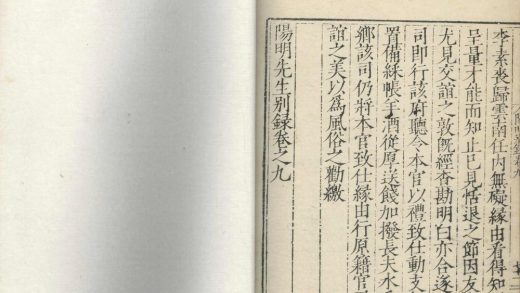 李素喪歸雲南任內無礙緣由看得知
呈量才能而知止已見恬退之節因友
尤見交誼之敦既經查勘明白亦合遂
司即行該府聽令本官以禮致仕動支
置備綵帳羊酒從厚送餞加撥長夫水
鄉該司仍將本官致仕緣由行原籍官
誼之美以爲風俗之勸繳
陽明先生別錄卷之九